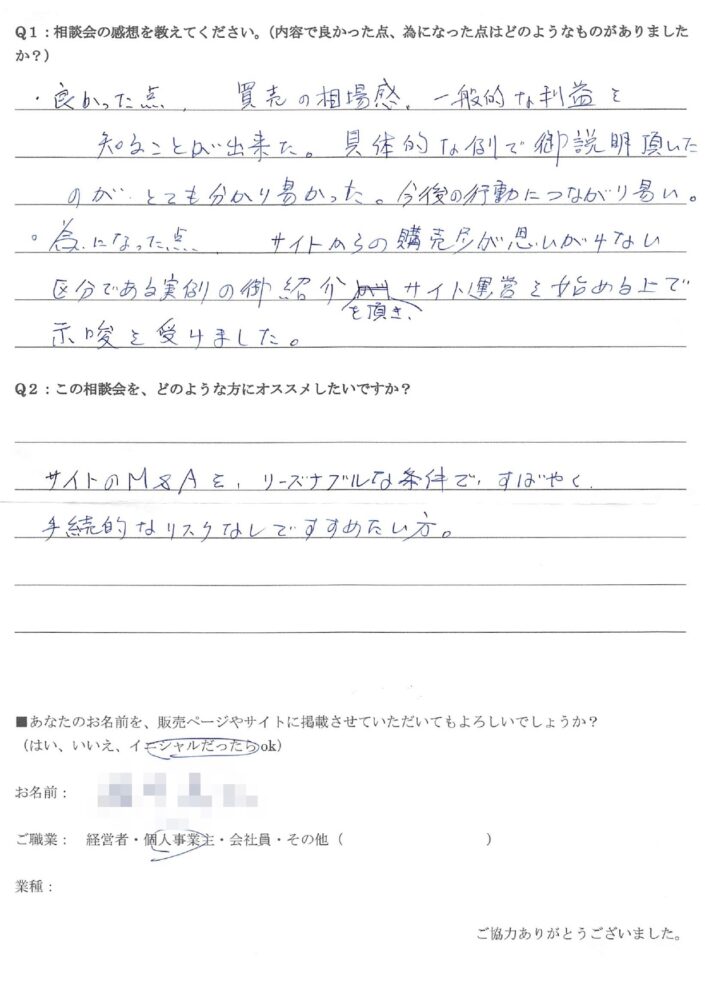 Q1：相談会の感想を教えてください。(内容で良かった点、為になった点はどのようなものがありました
か？)
・良かった点、 買売の相場感、一般的な利益を
知ることが出来た。具体的な例で御説明頂いた
のが、とても分かり易かった。今後の行動につながり易い。
・為になった点 サイトからの購売層が思いがけない
区分である実例の御紹介を頂き、サイト運営を始める上で
示唆を受けました。
Q2：この相談会を、どのような方にオススメしたいですか？
サイトのM&Aを、リーズナブルな条件で、すばやく、
手続的なリスクなしですすめたい方。
■あなたのお名前を、販売ページやサイトに掲載させていただいてもよろしいでしょうか？
（はい、いいえ、イニシャルだったらok）
お名前：
ご職業： 経営者・個人事業主・会社員・その他（ ）
業種：
ご協力ありがとうございました。